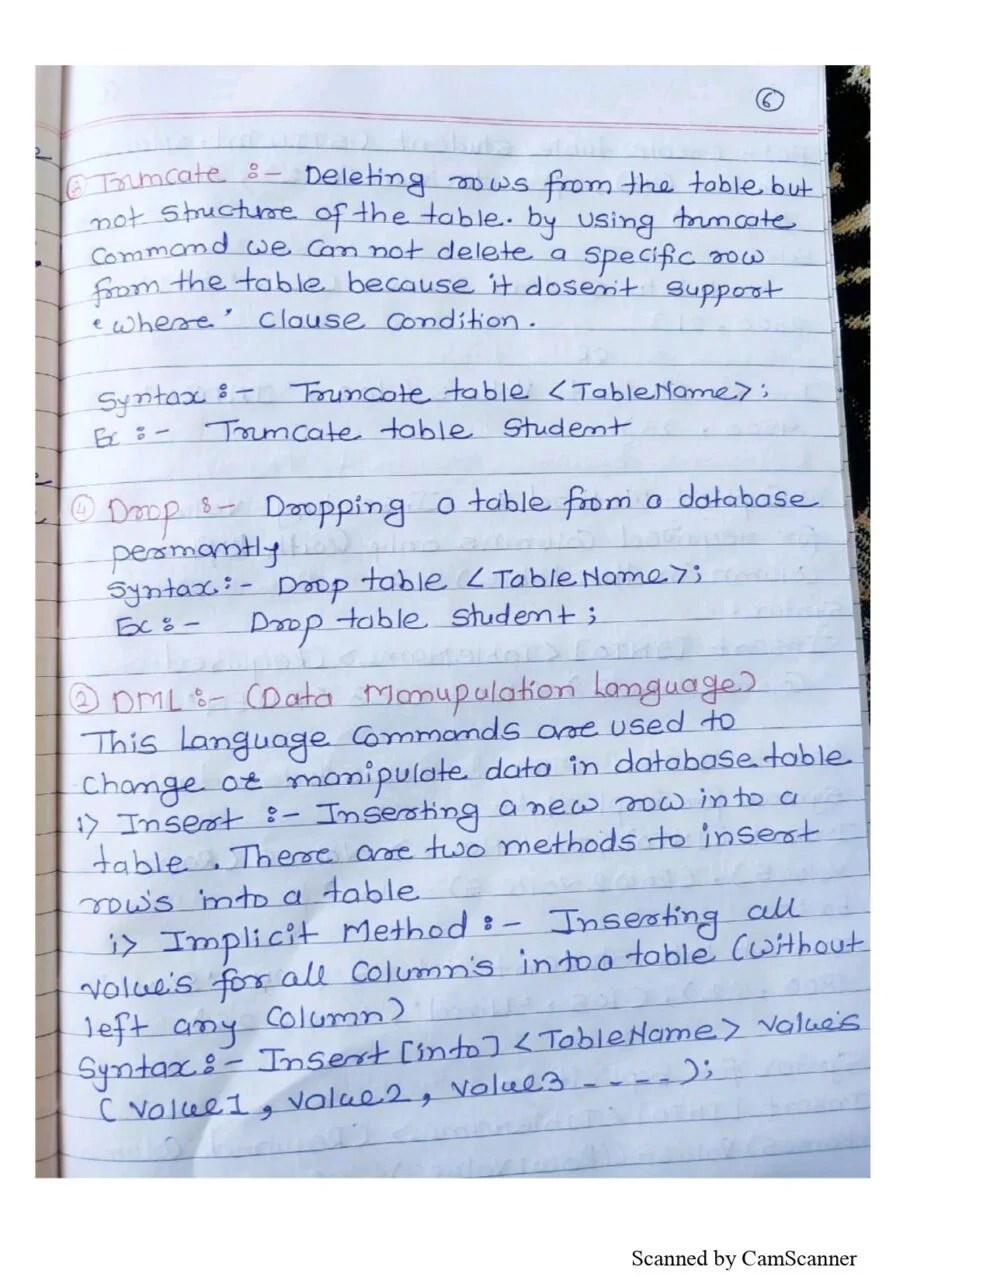 6
③ Truncate :- Deleting rows from the table but
not structure of the table. by using truncate
Command we can not delete a specific row
from the table because it dosen't support
'where' clause condition.
Syntax :- Truncate table <TableName>;
Ex :- Truncate table Student
④ Drop :- Dropping a table from a database
permantly
Syntax :- Drop table <TableName>;
Ex :- Drop table student;
② DML :- (Data Manupulation Language)
This Language Commands are used to
change or manipulate data in database table
1> Insert :- Inserting a new row into a
table. There are two methods to insert
row's into a table
i> Implicit Method :- Inserting all
value's for all Column's into a table (without
left any Column)
Syntax :- Insert [into] <TableName> value's
(value1, value2, value3 ----);
Scanned by CamScanner